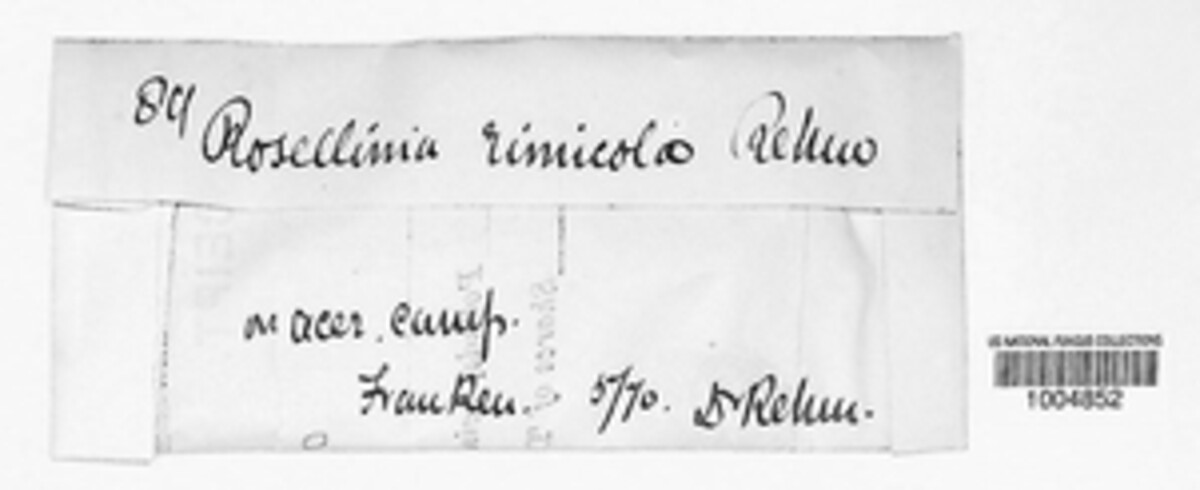 89 Rosellinia rimicola Rehm
on acer. camp.
Franken. 5/70. Dr Rehm.
US NATIONAL FUNGUS COLLECTIONS
1004852